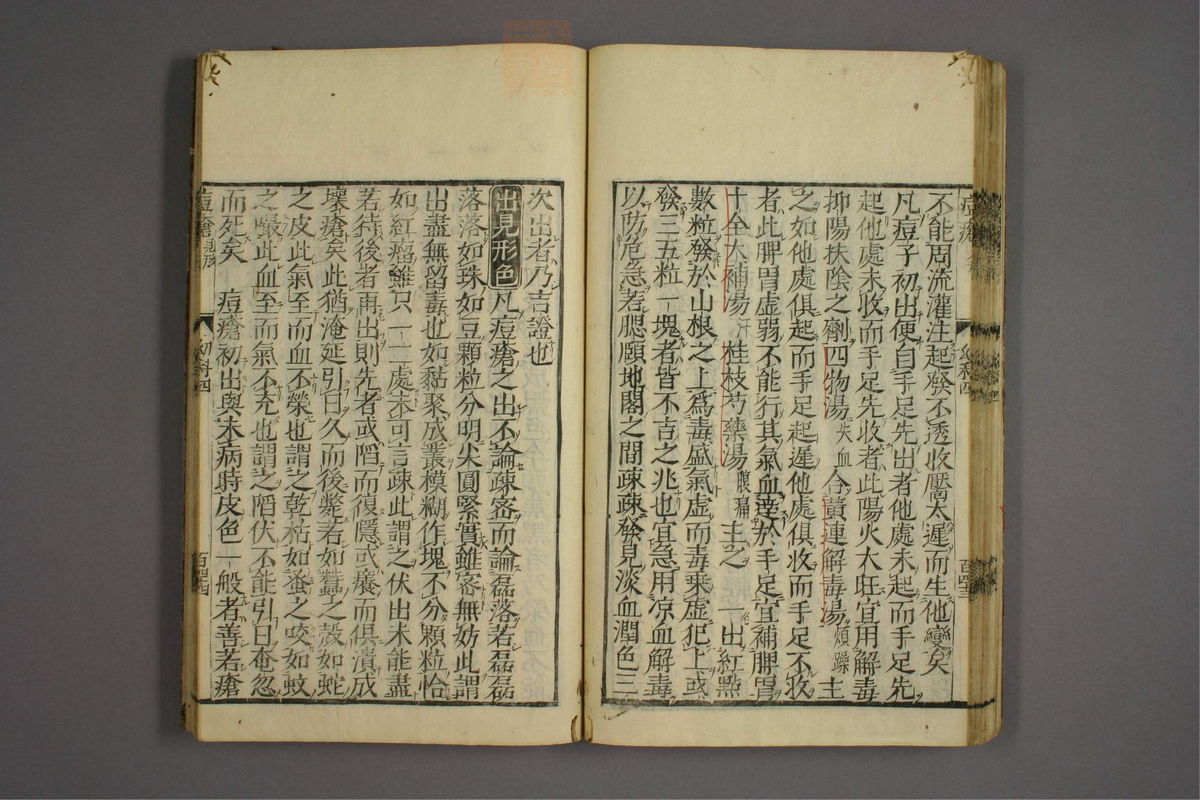 不能周流灌注起發不透收靨太遲而生他變矣
凡痘子初出便自手足先出者他處未起而手足先
起他處未收而手足先收者此陽火大旺宜用解毒
抑陽扶陰之劑四物湯失血合黃連解毒湯煩躁主
之如他處俱起而手足起遲他處俱收而手足不收
者此脾胃虛弱不能行其氣血達於手足宜補脾胃
十全大補湯汗桂枝芍藥湯腹痛主之 一出紅點
數粒發於山根之上爲毒盛氣虛而毒乘虛犯上或
發三五粒一塊者皆不吉之兆也宜急用凉血解毒
以防危急若腮頤地閣之間疎疎發見淡血潤色三
次出者乃吉證也
出見形色凡痘瘡之出不論疎密而論磊落若磊磊
落落如珠如豆顆粒分明尖圓緊實雖密無妨此謂
出盡無留毒也如黏聚成叢模糊作塊不分顆粒恰
如紅瘤雖只一二處未可言疎此謂之伏出未能盡
若待後者再出則先者或陷而復隱或癢而俱潰成
壞瘡矣此猶淹延引日久而後斃若如蠶之殼如蛇
之皮此氣至而血不榮也謂之乾枯如蚤之咬如蚊
之㗖此血至而氣不充也謂之陷伏不能引日奄忽
而死矣 痘瘡初出與未病時皮色一般者善若瘡
痘瘡 見形 幼科四 百四十四